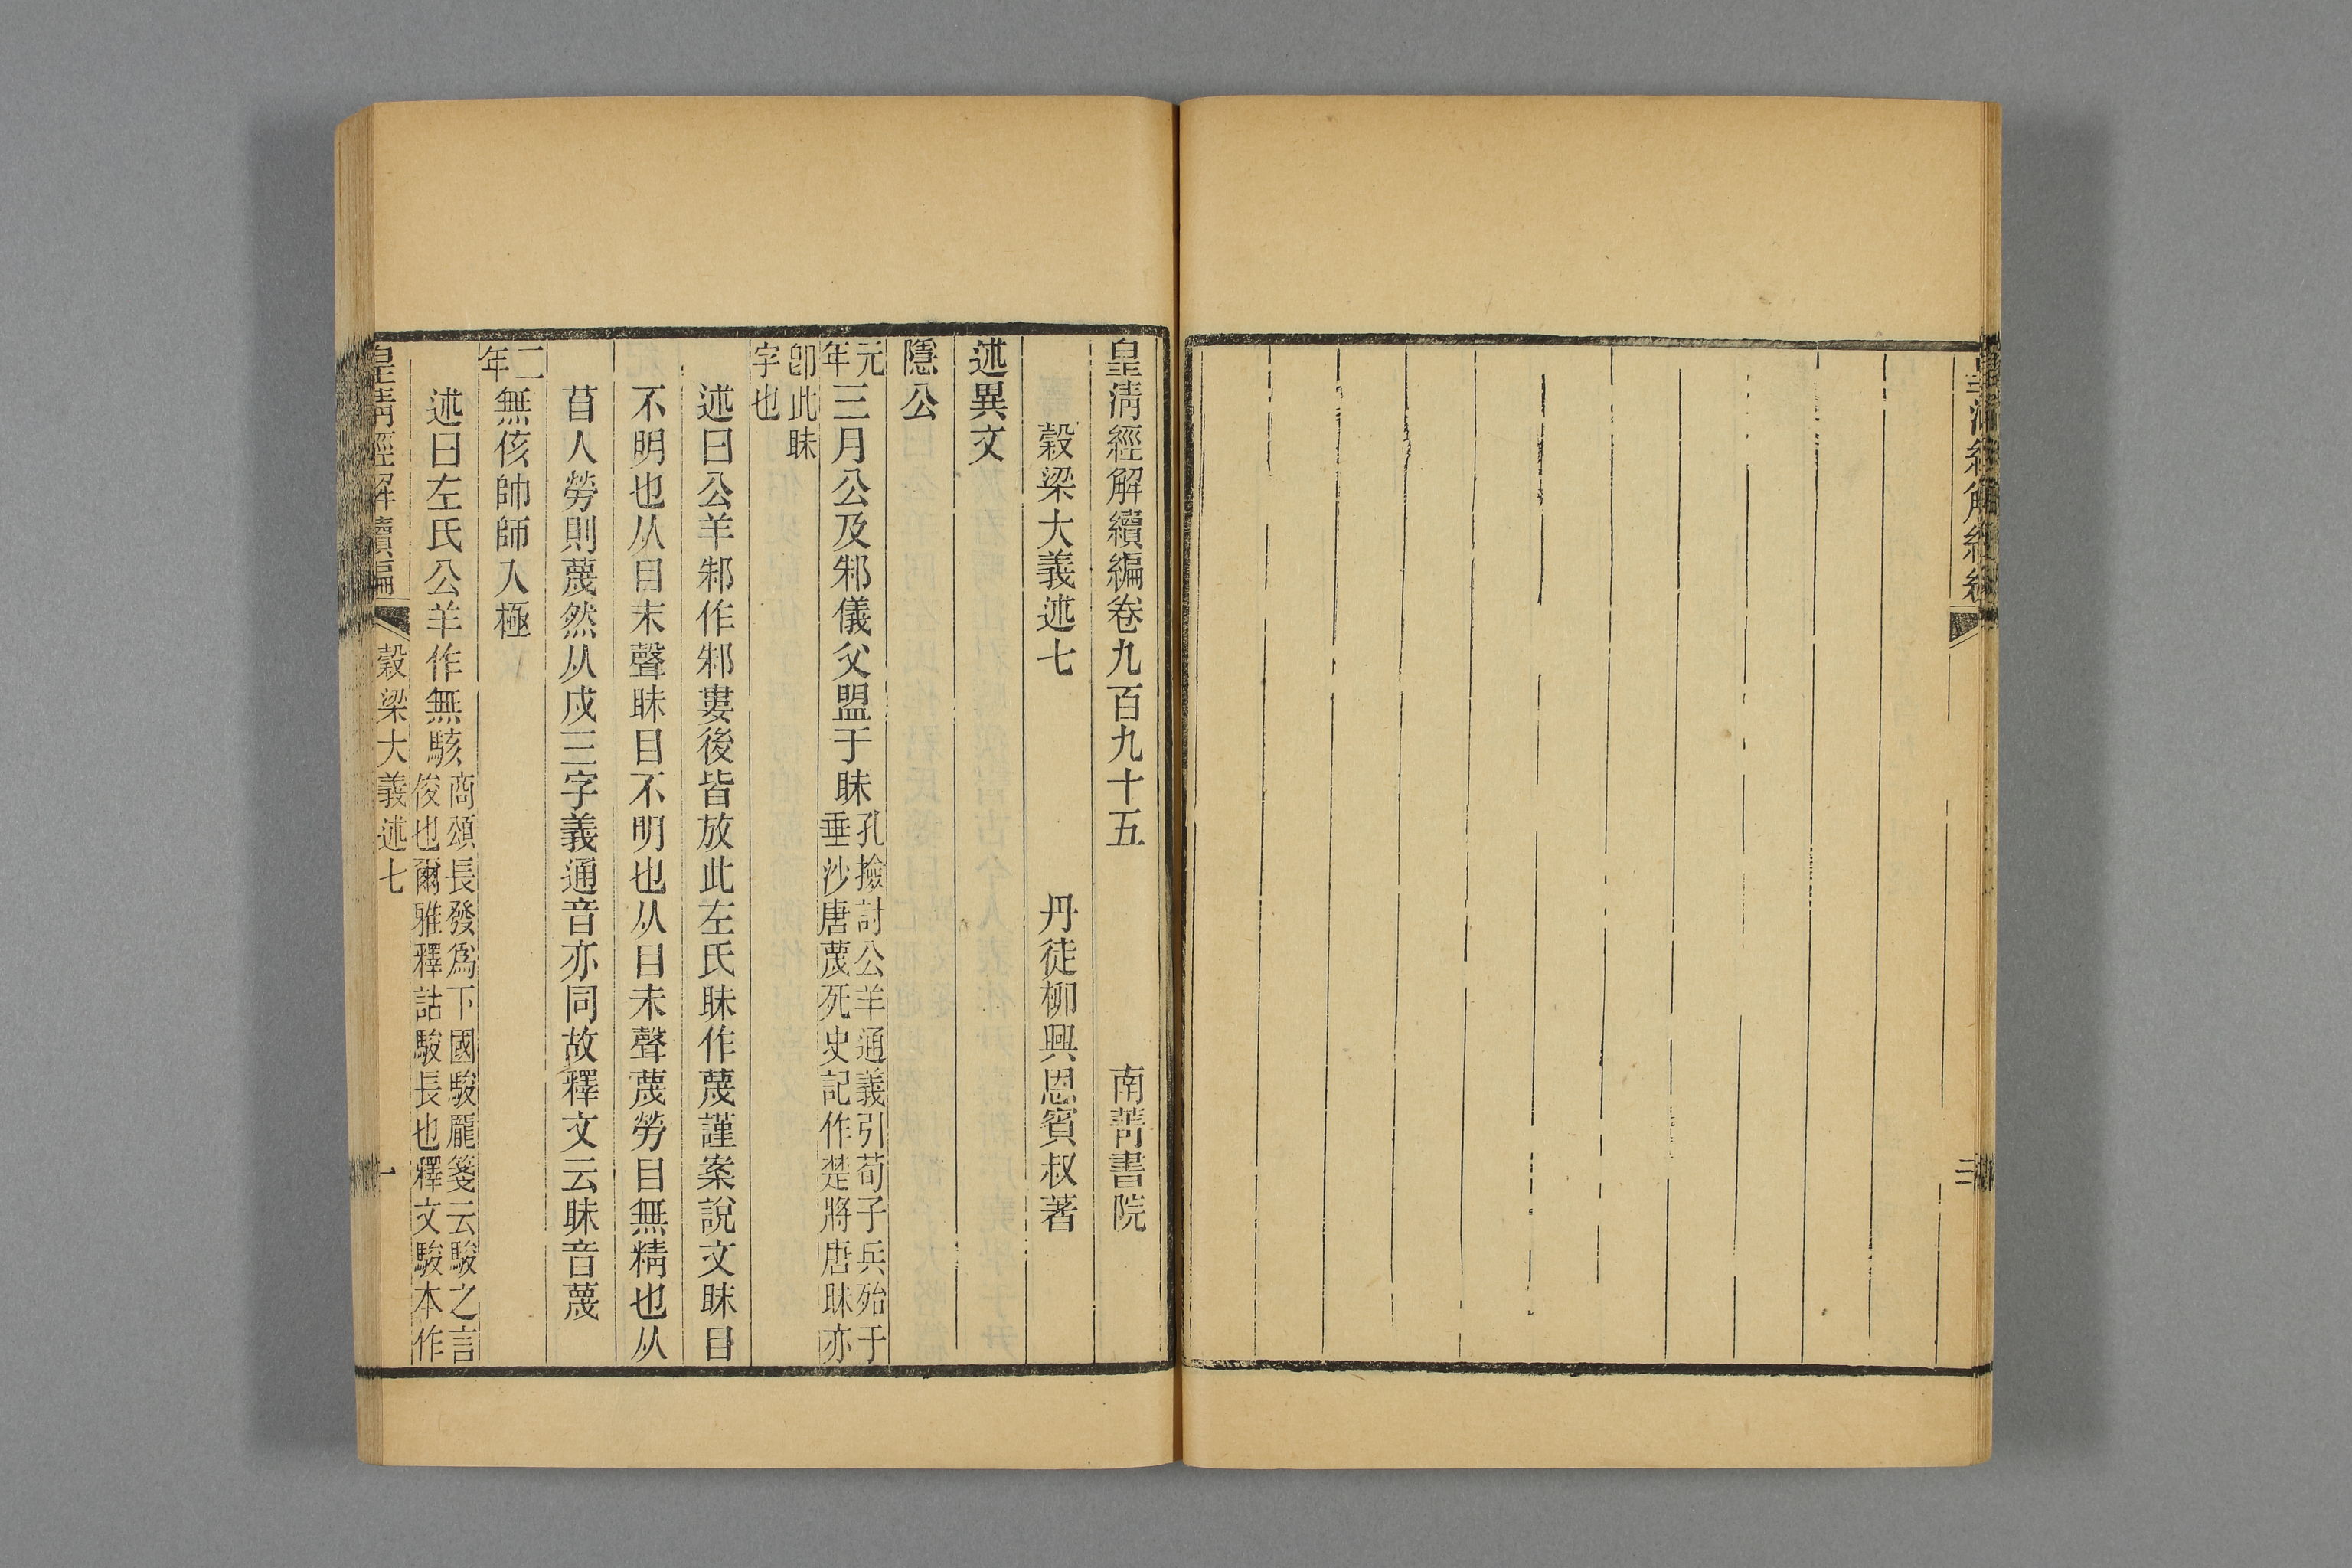 皇清經解續編
三
皇清經解續編卷九百九十五　南菁書院
穀梁大義述七　丹徒柳興恩賓叔著
述異文
隱公
元年三月公及邾儀父盟于眛孔撿討公羊通義引荀子兵殆于垂沙唐蔑死史記作楚將唐眛亦
卽此眛字也
述曰公羊邾作邾婁後皆放此左氏眛作蔑謹案說文眛目
不明也从目末聲眛目不明也从目未聲蔑勞目無精也从
苜人勞則蔑然从戍三字義通音亦同故釋文云眛音蔑
二年無侅帥師入極
述曰左氏公羊作無駭商頌長發爲下國駿龐箋云駿之言俊也爾雅釋詁駿長也釋文駿本作
皇清經解續編　穀梁大義述七　一